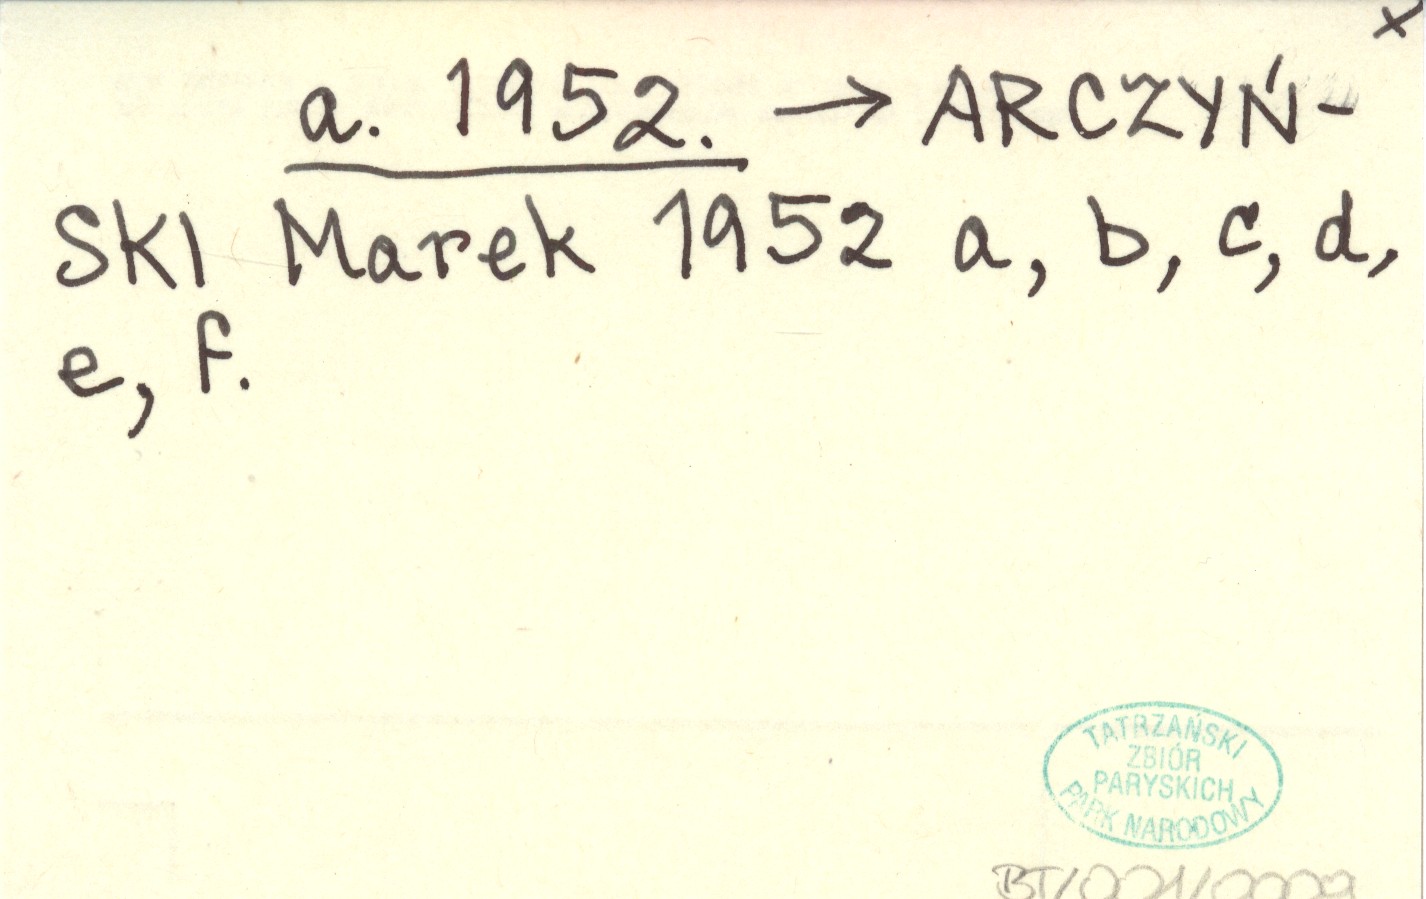 x
a. 1952. → ARCZYŃ-
SKI Marek 1952 a, b, c, d,
e, f.
TATRZAŃSKI
ZBIÓR
PARYSKICH
PARK NARODOWY